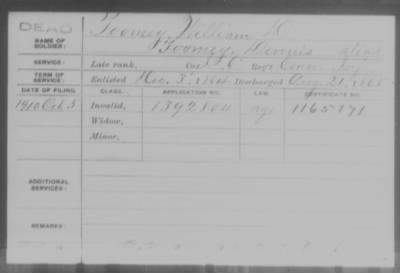 DEAD
NAME OF SOLDIER: Toomey, William H.
Toomey, Dennis alias
SERVICE: Late rank, Co. Reg't Conn. Inf
TERM OF SERVICE: Enlisted Dec. 5, 1864 Discharged Aug. 21, 1865
DATE OF FILING. CLASS. APPLICATION NO. LAW. CERTIFICATE NO.
1910 Oct 3 Invalid, 1392804 age 1165171
Widow,
Minor,
ADDITIONAL SERVICES:
REMARKS: